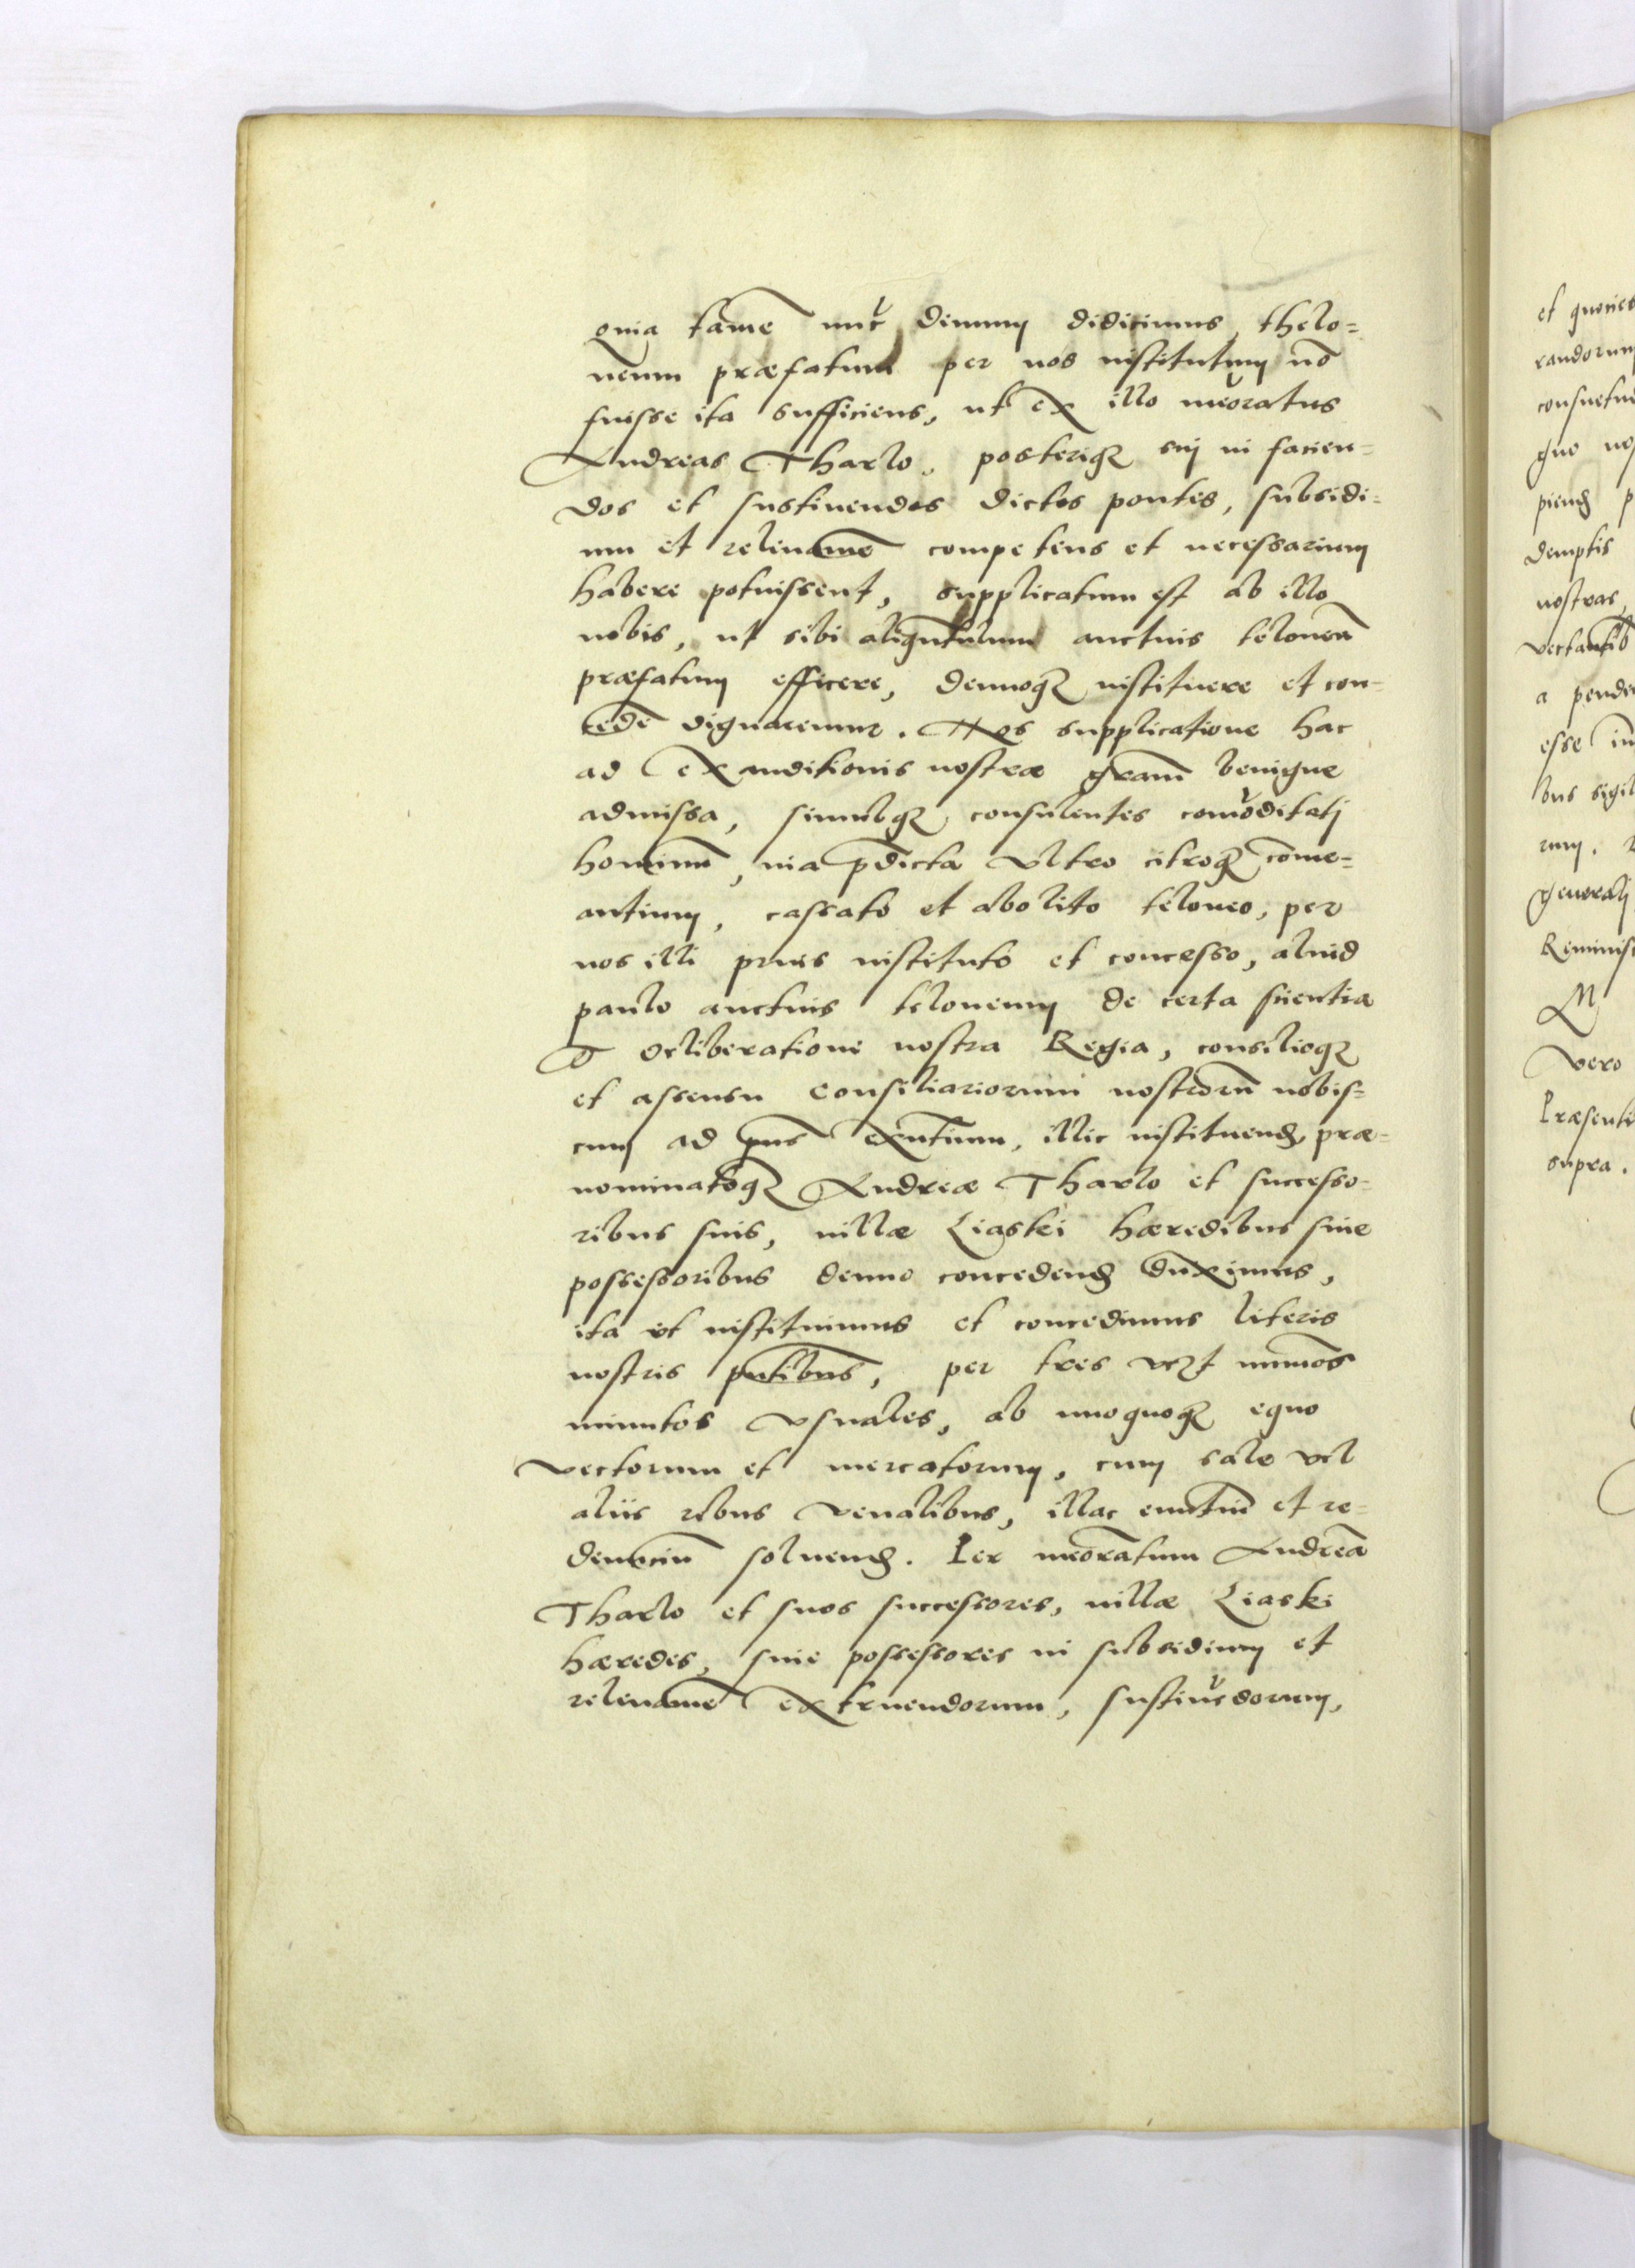 quia tamē nūc demum didicimus, thelo=
neum præfatum per nos institutum nō
fuisse ita sufficiens, ut ex illo meōratus
Andreas Tharlo, posteriq₃ sui in facien=
dos et sustinendos dictos pontes, subsidi=
um et releuamē competens et necessarium
habere potuissent, supplicatum est ab illo
nobis, ut sibi aliquātulum auctius teloneū
præfatum efficere, denuoq₃ instituere et con=
cedē dignaremur. Nos supplicatione hac
ad exauditionis nostræ gram̄ benigne
admissa, simulq₃ consulentes comoditati
hominū, uia p̄dicta vltro citroq₃ cōme=
antium, cassato et abolito teloneo, per
nos illi prius instituto et concesso, aliud
paulo auctius teloneum de certa scientia
deliberatione nostra Regia, consilioq₃
et assensu Consiliariorum nostrorū nobis=
cum ad pn̄s exn̄tium, illic instituend, præ=
nominatoq₃ Andreæ Tharlo et successo=
ribus suis, uillæ Liaski hæredibus siue
possessoribus denuo concedend duximus,
ita ut instituimus et concedimus literis
nostris pn̄tibus, per tres vꝫt nummos
minutos vsuales, ab unoquoq₃ equo
vectorum et mercatorum, cum sale vel
aliis rebus venalibus, illac euntiū et re=
deuntiū soluend. Per meōratum Andreā
Tharlo et suos successores, uillæ Liaski
hæredes, siue possessores in subsidium et
releuamē extruendorum, sustinēdorum,
et quories
randorum
consuetu
quo nos
piend p
demptis
nostras,
vectantib
a pende
esse in
bus sigil
rum.
generali
Reminisc
M
vero
Præsenti
supra.